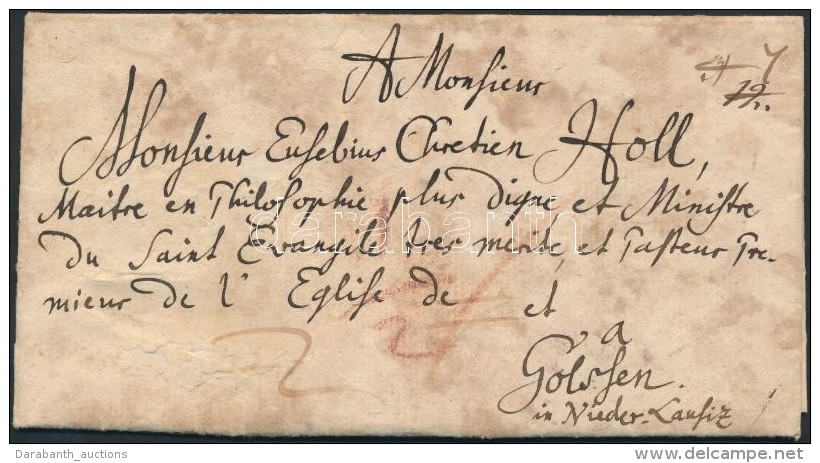 A Monsieur
Monsieur Eusebius Chretien Holl,
Maitre en Philosophie plus digne, et Ministre
du Saint Evangile tres merite, et Pasteur Pre-
mieur de l' Eglise de et
a
Golssen.
in Nieder-Lausiz
darabanth
Darabanth_auctions
delcampe.net